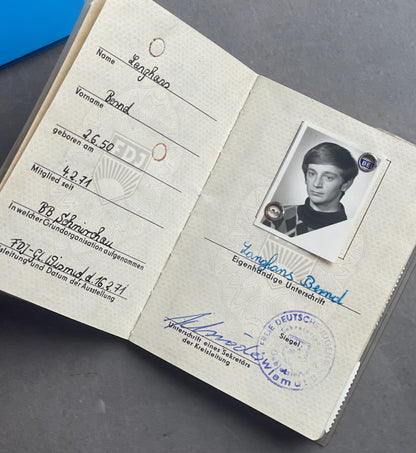 Name Langhans
Vorname Bernd
geboren am 2.6.50
Mitglied seit 4.2.71
BB Schmirchau
In welcher Grundorganisation aufgenommen
FDJ-GL Wismut d. 16.2.71
leitung und Datum der Ausstellung
FDJ
Langhans Bernd
Eigenhändige Unterschrift
Unterschrift eines Sekretärs
der Kreisleitung
Siegel
FREIE DEUTSCHE JUGEND
Wismut